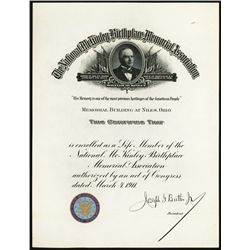 The National McKinley Birthplace Memorial Association
WILLIAM McKINLEY
"His Memory is one of the most precious heritages of the American People"
MEMORIAL BUILDING AT NILES, OHIO
THIS CERTIFIES THAT
is enrolled as a Life Member of the
National McKinley Birthplace
Memorial Association
authorized by an act of Congress
dated March 4, 1911.
Joseph G. Butler, Jr.
President